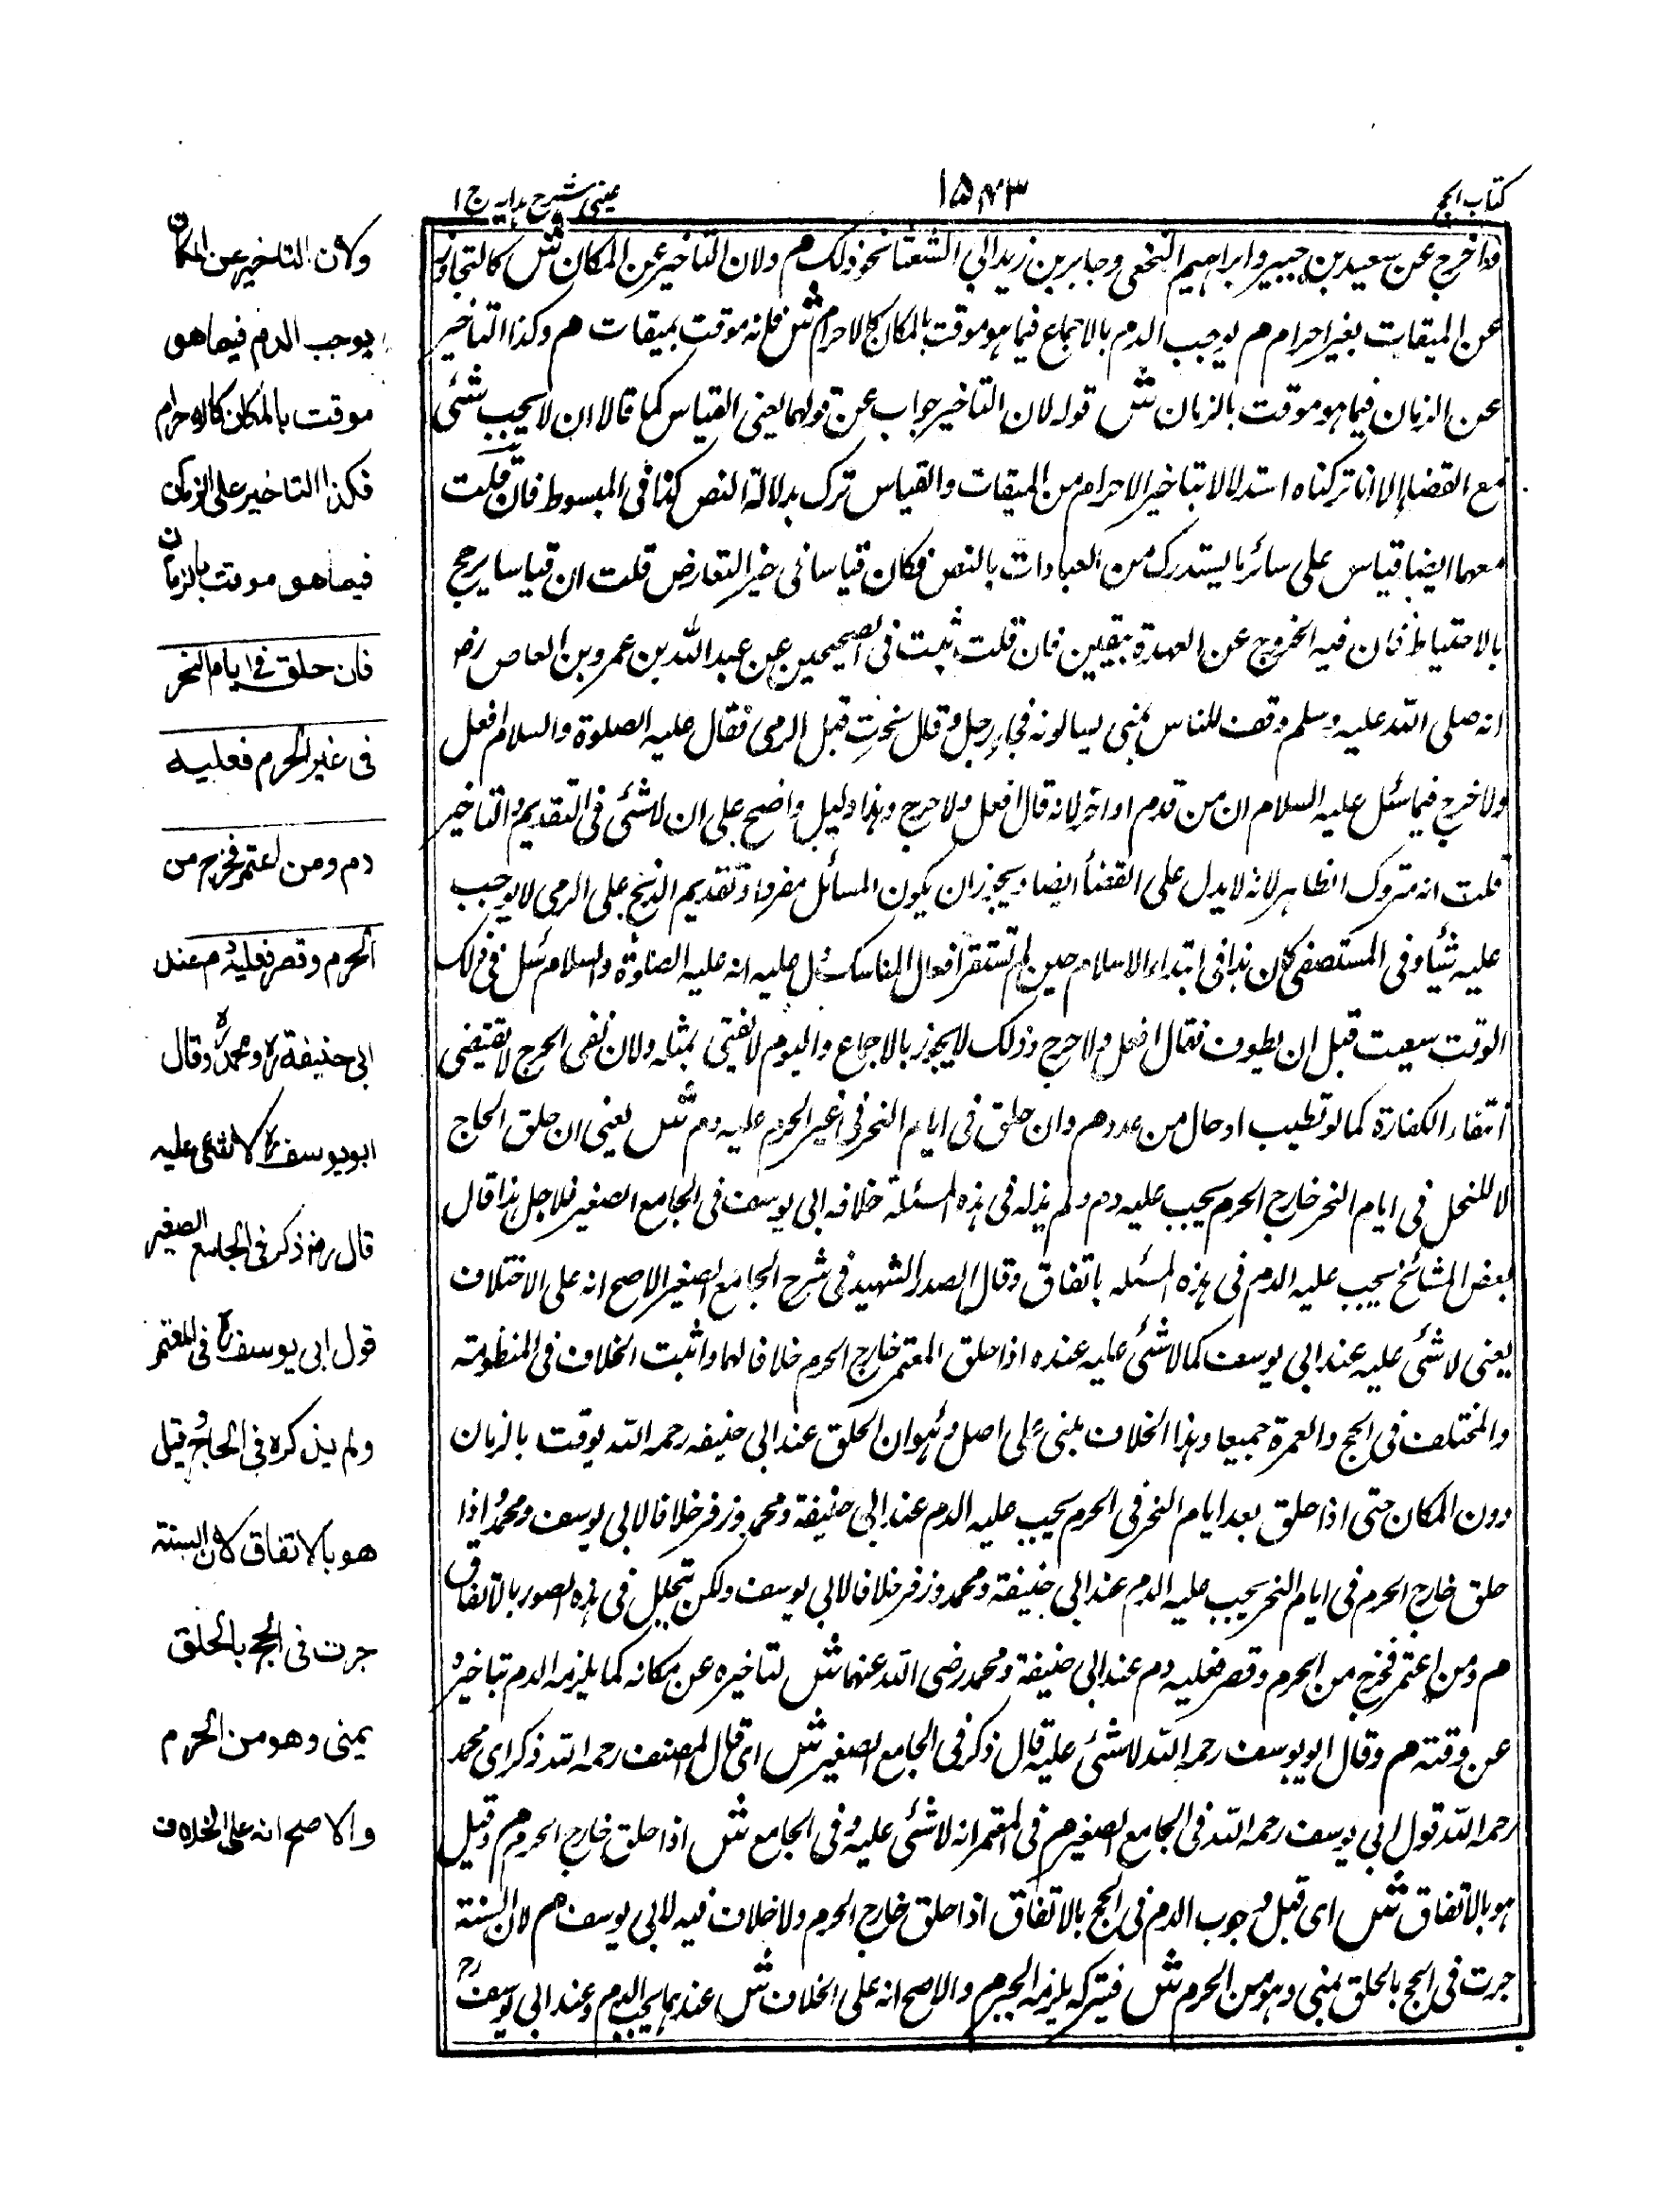 كتاب الحج
١٥٨٣
عينى شرح هدايه ج ١
واخرج عن سعيد بن جبير وابراهيم النخعى وجابر بن زيد ابى الشعثا نحو ذلك م ولان التاخير عن المكان ش كالتجاوز
عن الميقات بغير احرام م يوجب الدم بالاجماع فيما هو موقت بالمكان كالاحرام ش فانه موقت بميقات م وكذا التاخير
عن الزمان فيما هو موقت بالزمان ش قوله لان التاخير جواب عن قولهما يعنى القياس كما قالا ان لا يجب شئى
مع القضا الا انا تركناه استدلالا بتاخير الاحرام من الميقات والقياس ترك بدلالة النص كذا فى المبسوط فان قلت
معهما ايضا قياس على سائر ما يستدرك من العبادات بالنص فكان قياسا فى خير التعارض قلت ان قياسا يرجح
بالاحتياط فان فيه الخروج عن العهدة بيقين فان قلت ثبت فى الصحيحين عن عبد الله بن عمرو بن العاص رض
انه صلى الله عليه وسلم وقف للناس بمنى يسالونه فجاء رجل وقال نحرت قبل الرمى فقال عليه الصلوة والسلام افعل
ولا حرج فيما سئل عليه السلام ان من قدم او اخر لانه قال افعل ولا حرج وهذا دليل واضح على ان لا شئى فى التقديم والتاخير
قلت انه متروك الظاهر لانه لا يدل على القضأ ايضا ويجوز ان يكون السائل مفردا وتقديم الذبح على الرمى لا يوجب
عليه شيئا وفى المستصفى كان هذا فى ابتداء الاسلام حين لم تستقر افعال المناسك دل عليه انه عليه الصلوة والسلام سئل فى ذلك
الوقت سعيت قبل ان يطوف فقال افعل ولا حرج وذلك لا يجوز بالاجماع واليوم لا يفتى بمثله ولان نفى الحرج لا يقتضى
انتفاء الكفارة كما لو تطيب او حال من عدد م وان حلق فى ايام النحر فى غير الحرم عليه دم ش يعنى ان حلق الحاج
لا للتحلل فى ايام النحر خارج الحرم يجب عليه دم ولم يذله فى هذه المسئلة خلافه ابى يوسف فى الجامع الصغير فلاجل هذا قال
بعض المشائخ يجب عليه الدم فى هذه المسئله باتفاق وقال الصدر الشهيد فى شرح الجامع الصغير الاصح انه على الاختلاف
يعنى لا شئى عليه عند ابى يوسف كما لا شئى عليه عنده اذا حلق المعتمر خارج الحرم خلافا لهما واثبت الخلاف فى المنظومته
والمختلف فى الحج والعمرة جميعا وهذا الخلاف مبنى على اصل وهو ان الحلق عند ابى حنيفه رحمه الله يوقت بالزمان
دون المكان حتى اذا حلق بعد ايام النحر فى الحرم يجب عليه الدم عند ابى حنيفة ومحمد وزفر خلافا لابى يوسف ومحمد اذا
حلق خارج الحرم فى ايام النحر يجب عليه الدم عند ابى حنيفة ومحمد وزفر خلافا لابى يوسف ولكن تحلل فى هذه الصور بالاتفاق
م ومن اعتمر فخرج من الحرم وقصر فعليه دم عند ابى حنيفة ومحمد رضى الله عنهما ش لتاخيره عن مكانه كما يلزمه الدم بتاخيره
عن وقته م وقال ابو يوسف رحمه الله لا شئى عليه قال ذكر فى الجامع الصغير ش اى قال المصنف رحمه الله ذكر اى محمد
رحمه الله قول ابى يوسف رحمه الله فى الجامع الصغير م فى المعتمر انه لا شئى عليه وفى الجامع ش اذا حلق خارج الحرم م وقيل
هو بالاتفاق ش اى قبل وجوب الدم فى الحج بالاتفاق اذا حلق خارج الحرم ولا خلاف فيه لابى يوسف م لان السنة
جرت فى الحج بالحلق بمنى وهو من الحرم ش فيتركه يلزمه الجبر م والاصح انه على الخلاف ش عندهما يجب الدم وعند ابى يوسف رح
ولان التاخير عن المكان
يوجب الدم فيما هو
موقت بالمكان كالاحرام
فكذا التاخير على الزمان
فيما هو موقت بالزمان
فان حلق فى ايام النحر
فى غير الحرم فعليه
دم ومن اعتمر فخرج من
الحرم وقصر فعليه دم عند
ابى حنيفة رح ومحمد رح وقال
ابو يوسف رح لا شئى عليه
قال رض ذكر فى الجامع الصغير
قول ابى يوسف رح فى المعتمر
ولم يذكره فى الحاج و قيل
هو بالاتفاق لان السنة
جرت فى الحج بالحلق
بمنى وهو من الحرم
والاصح انه على الخلاف